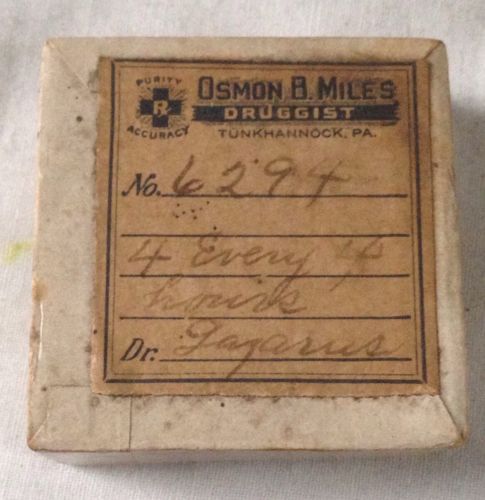 PURITY
Rx
ACCURACY
OSMON B. MILES
DRUGGIST
TUNKHANNOCK, PA.
No. 6294
4 Every 4
hours
Dr. Lazarus